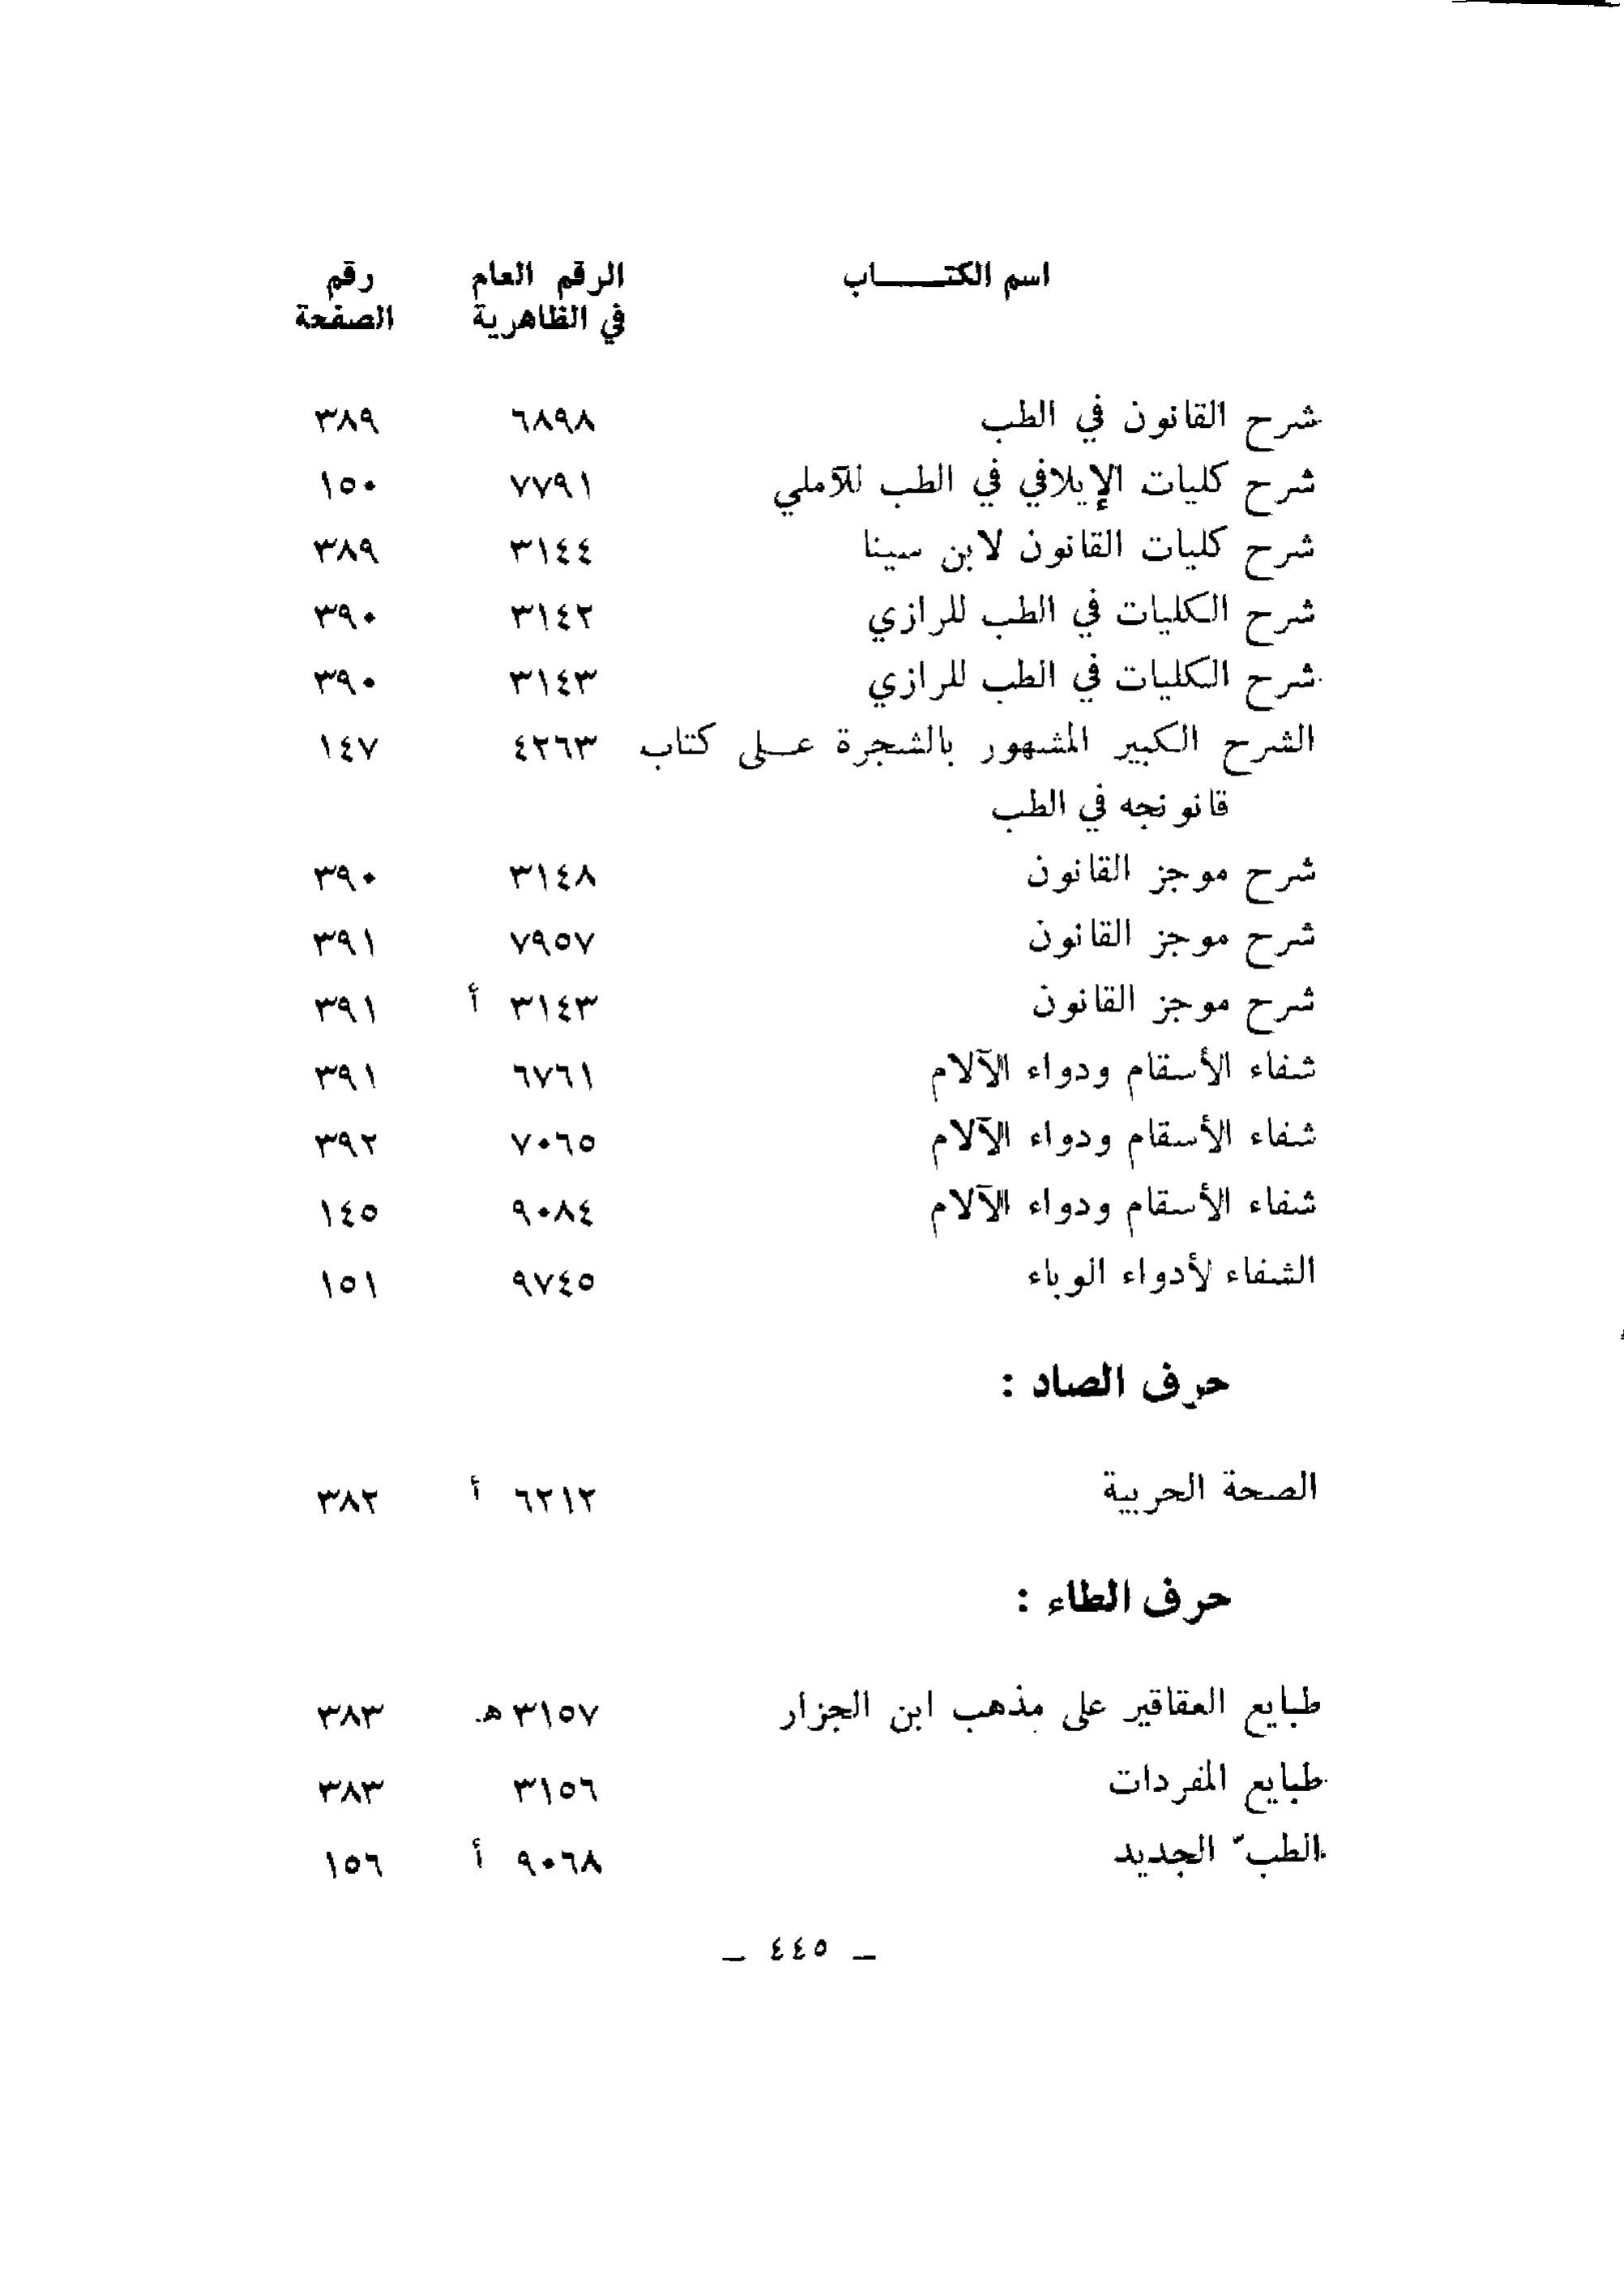 اسم الكتـــــاب الرقم العام رقم
في الظاهرية الصفحة
شرح القانون في الطب ٦٨٩٨ ٣٨٩
شرح كليات الإيلافي في الطب للآملي ٧٧٩١ ١٥٠
شرح كليات القانون لابن سينا ٣١٤٤ ٣٨٩
شرح الكليات في الطب للرازي ٣١٤٢ ٣٩٠
شرح الكليات في الطب للرازي ٣١٤٣ ٣٩٠
الشرح الكبير المشهور بالشجرة عــلى كتاب ٤٢٦٣ ١٤٧
قانونجه في الطب
شرح موجز القانون ٣١٤٨ ٣٩٠
شرح موجز القانون ٧٩٥٧ ٣٩١
شرح موجز القانون ٣١٤٣ أ ٣٩١
شفاء الأسقام ودواء الآلام ٦٧٦١ ٣٩١
شفاء الأسقام ودواء الآلام ٧٠٦٥ ٣٩٢
شفاء الأسقام ودواء الآلام ٩٠٨٤ ١٤٥
الشفاء لأدواء الوباء ٩٧٤٥ ١٥١
حرف الصاد :
الصحة الحربية ٦٢١٢ أ ٣٨٢
حرف الطاء :
طبايع العقاقير على مذهب ابن الجزار ٣١٥٧ هـ ٣٨٣
طبايع المفردات ٣١٥٦ ٣٨٣
الطبّ الجديد ٩٠٦٨ أ ١٥٦
ـ ٤٤٥ ـ